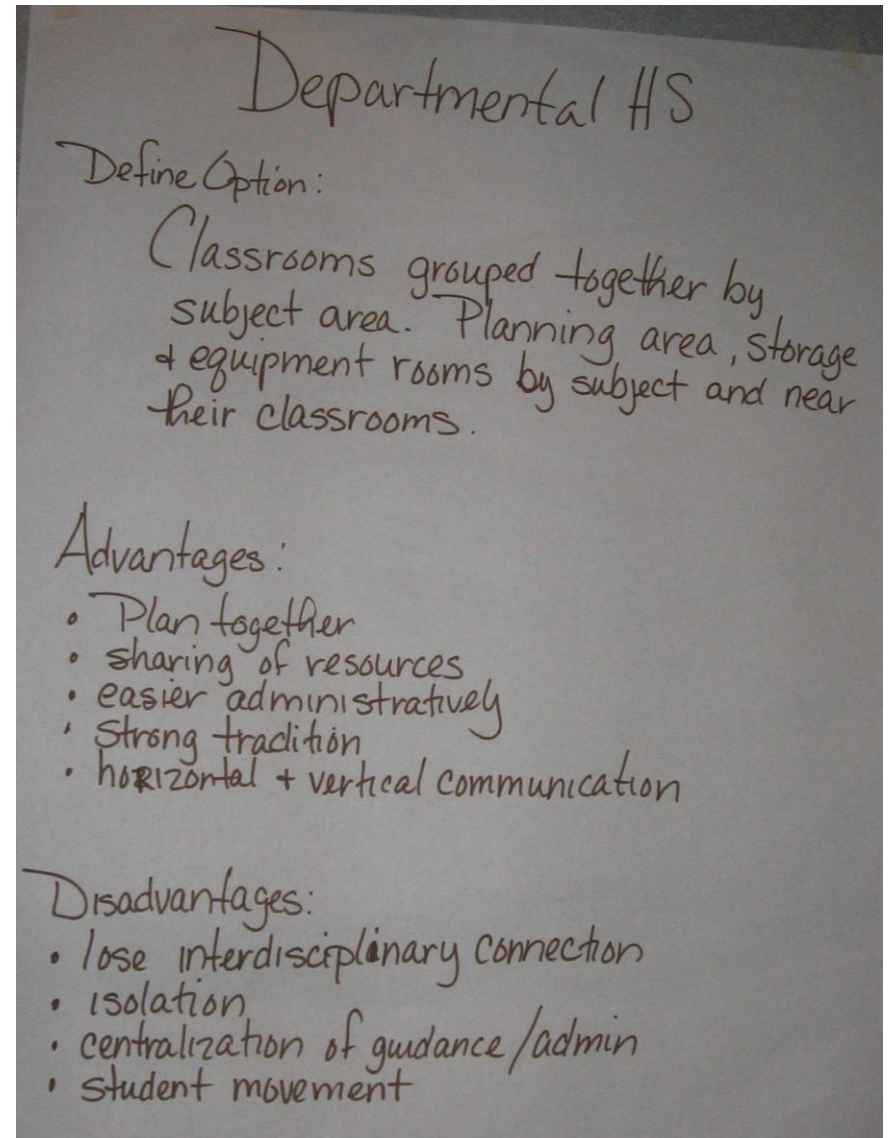 Departmental HS
Define Option:
Classrooms grouped together by
subject area. Planning area, storage
& equipment rooms by subject and near
their classrooms.
Advantages:
• Plan together
• sharing of resources
• easier administratively
• Strong tradition
• horizontal + vertical communication
Disadvantages:
• lose interdisciplinary connection
• isolation
• centralization of guidance/admin
• student movement